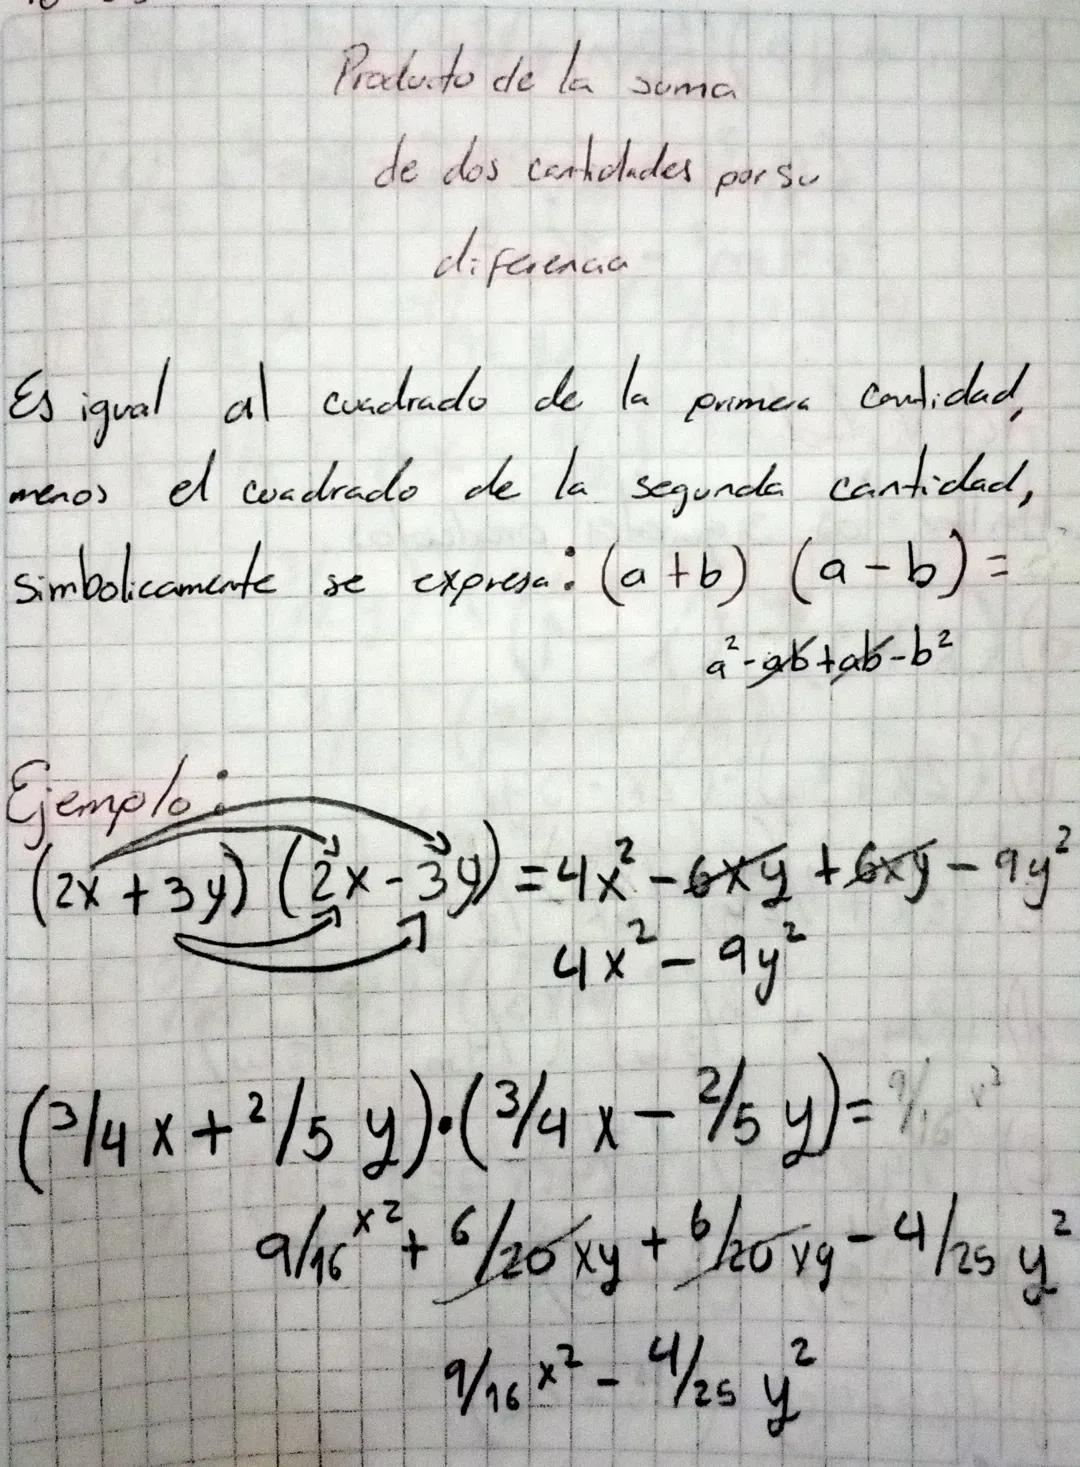 Producto de la suma
de dos cantidades por su
diferencia
Es igual al cuadrado de la primera cantidad,
menos el cuadrado de la segunda cantidad,
simbolicamente se expresa: (a+b) (a-b) =
a²-ab+ab-b²
Ejemplo:
(2x+3y) (2x-3y) = 4x²-6xy+6xy-9y²
4x²-9y²
(3/4 x + 2/5 y)·(3/4 x - 2/5 y) =
9/16 x² + 6/20 xy + 6/20 xy - 4/25 y²
9/16 x² - 4/25 y²